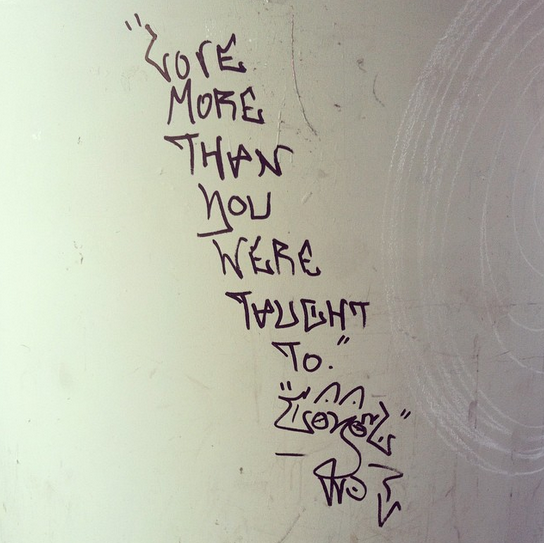 "LOVE
MORE
THAN
YOU
WERE
TAUGHT
TO."